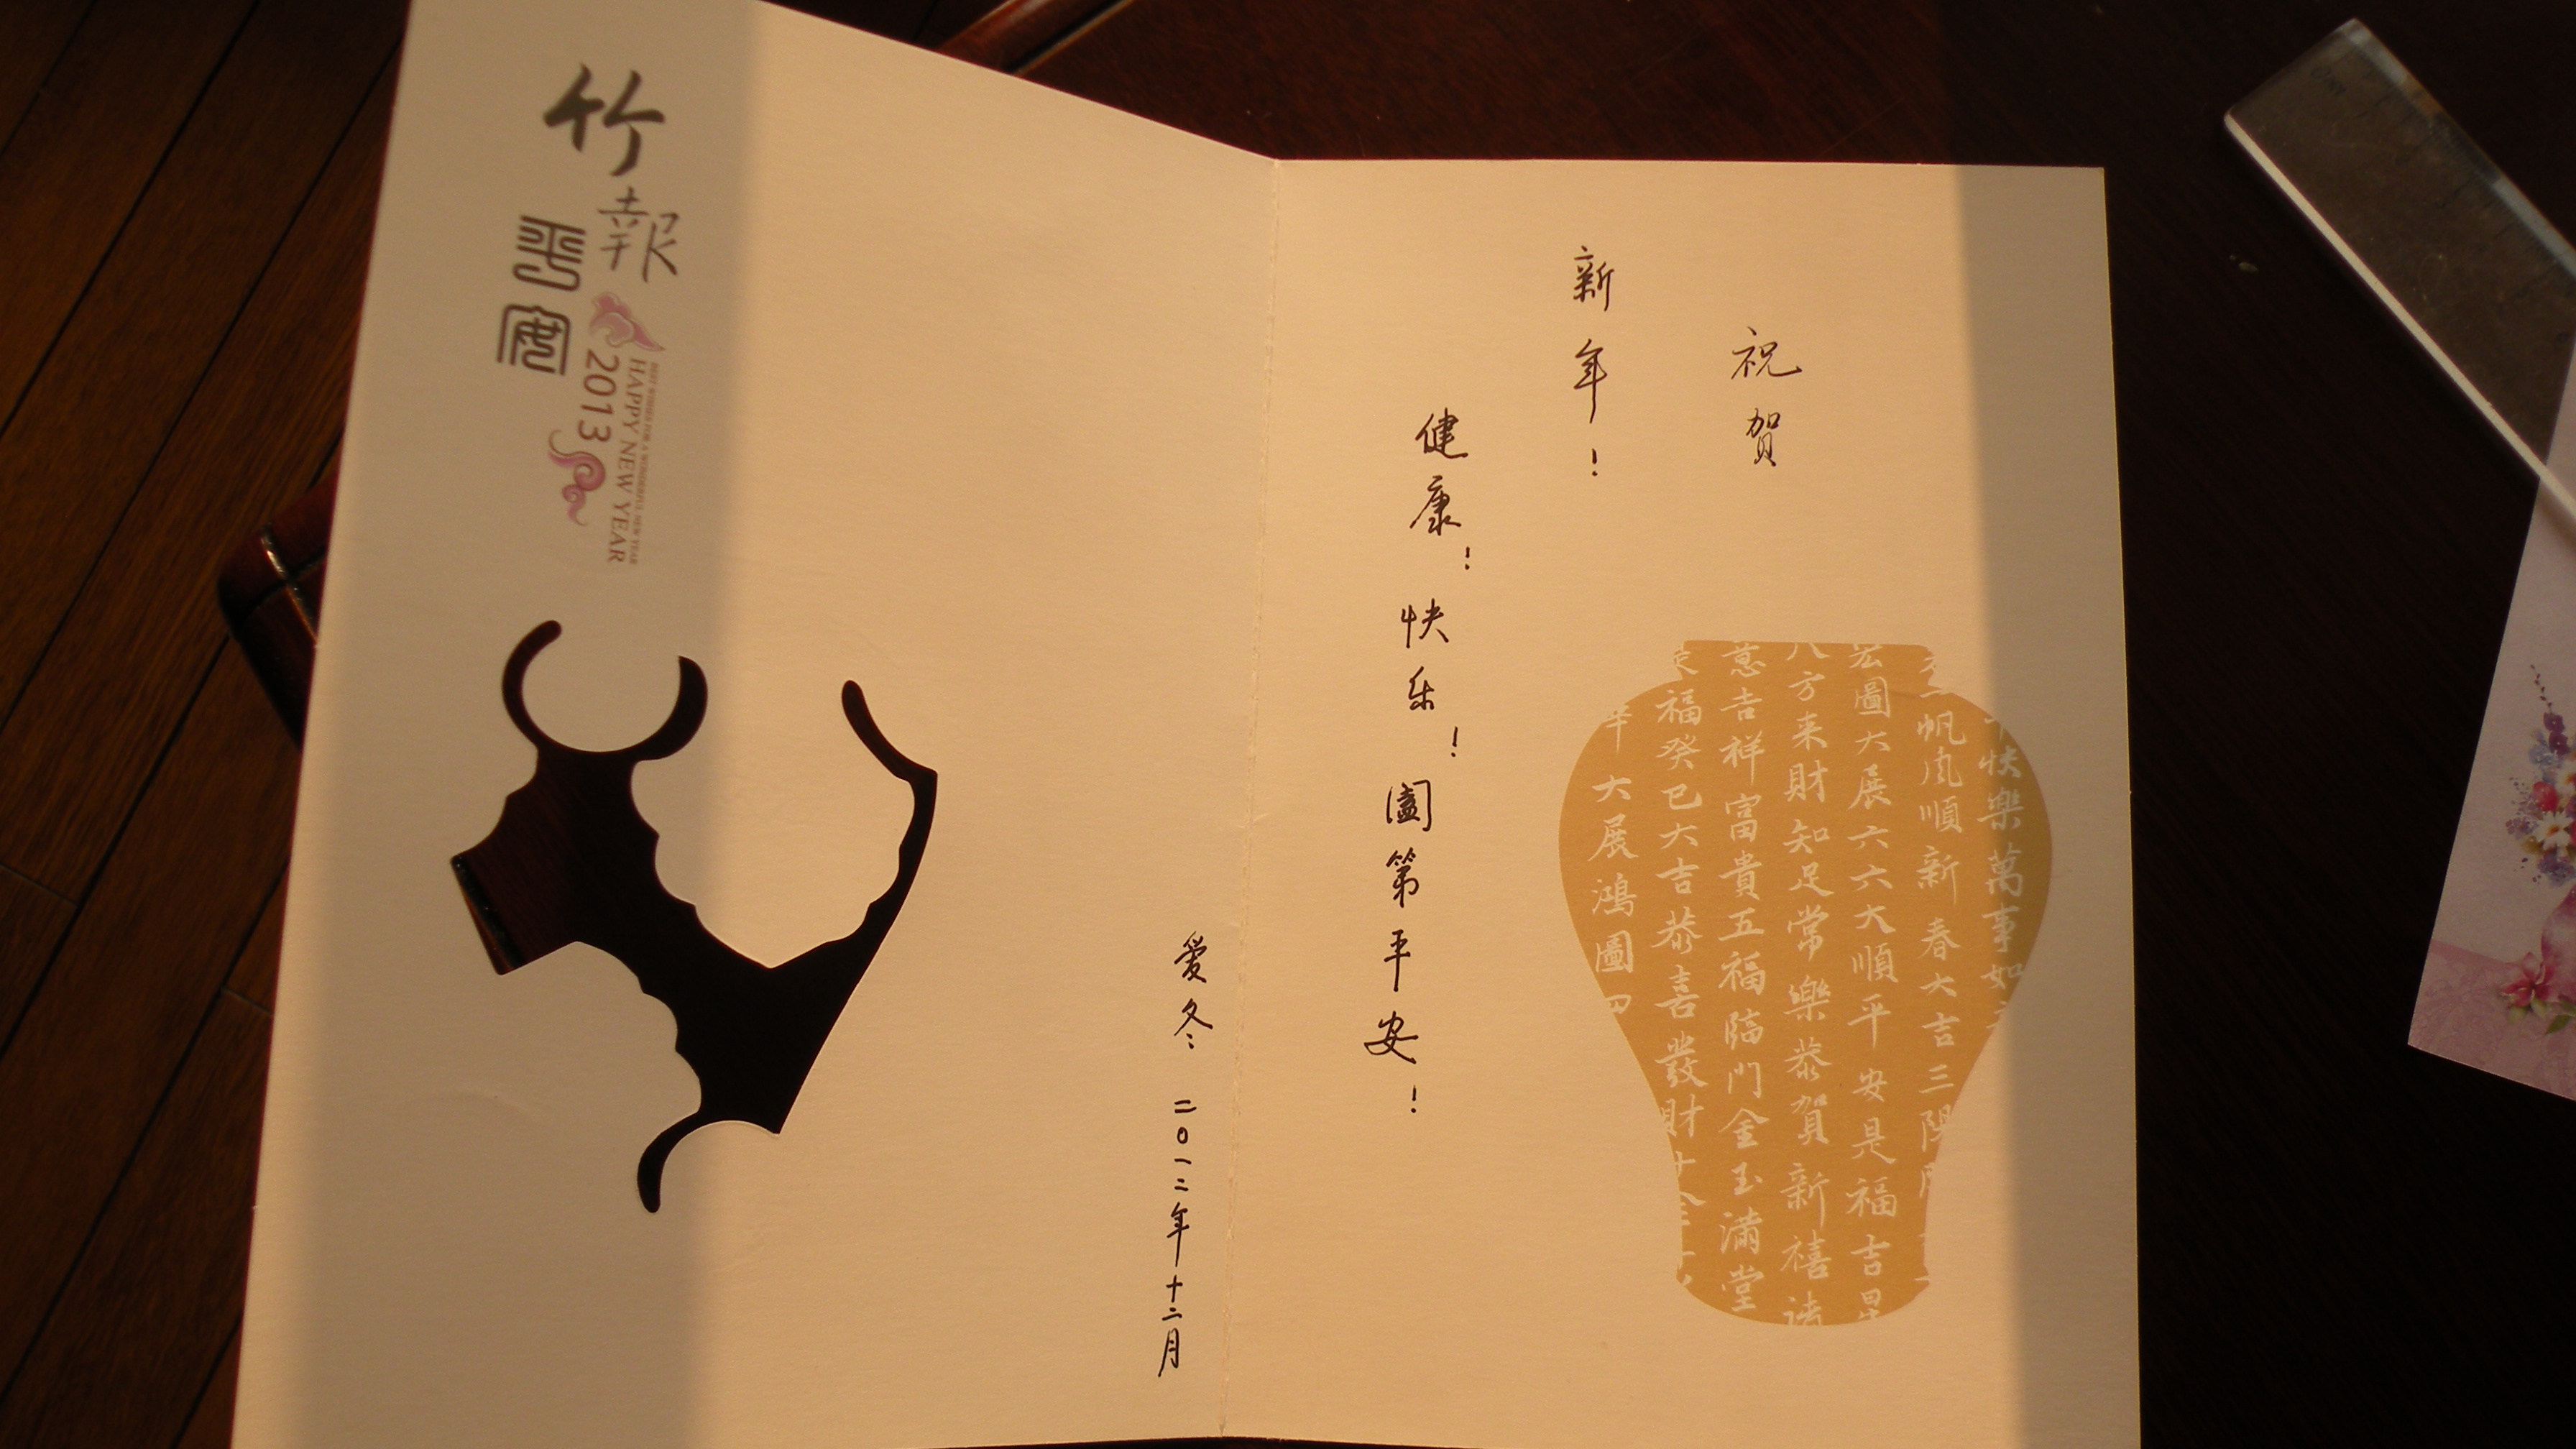 竹報
平安
2013
HAPPY NEW YEAR
BEST WISHES FOR A WONDERFUL NEW YEAR
祝贺
新年！
健康！快乐！阖第平安！
爱冬 二0一二年十二月
快樂萬事如
帆風順新春大吉三陽
宏圖大展六六大順平安是福吉星
八方来財知足常樂恭賀新禧諸
意吉祥富貴五福臨門金玉滿堂
福癸巳大吉恭喜發財
大展鴻圖四